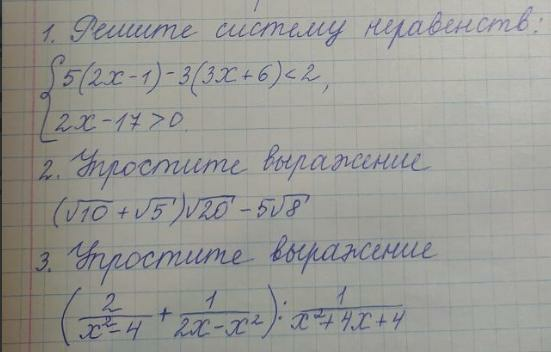 1. Решите систему неравенств:
{5(2x-1)-3(3x+6)<2,
2x-17>0.
2. Упростите выражение
(√10+√5)√20-5√8
3. Упростите выражение
(2/(x²-4) + 1/(2x-x²)) : 1/(x²+4x+4)